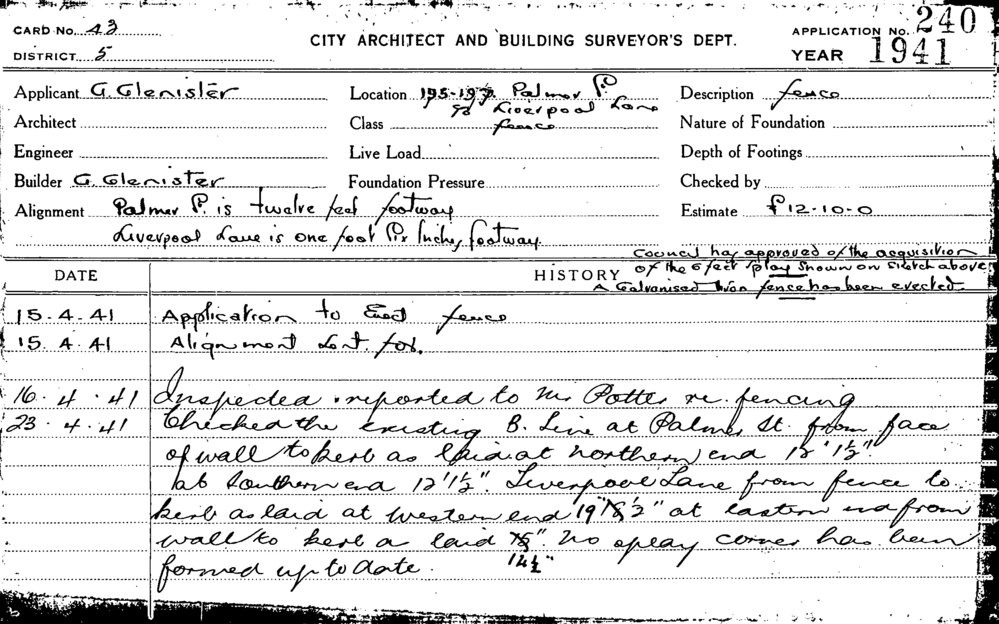 CARD No. 43
DISTRICT 5
CITY ARCHITECT AND BUILDING SURVEYOR'S DEPT.
APPLICATION No. 240
YEAR 1941
Applicant G. Glenister
Location 195-197 Palmer St.
Liverpool Lane
Description fence
Architect
Class fence
Nature of Foundation
Engineer
Live Load
Depth of Footings
Builder G. Glenister
Foundation Pressure
Checked by
Alignment Palmer St. is twelve feet footway
Estimate £12-10-0
Liverpool Lane is one foot six Inches footway.
DATE
HISTORY
Council has approved of the acquisition
of the 6 feet splay shown on sketch above
A Galvanised Iron fence has been erected.
15.4.41 Application to Erect fence
15.4.41 Alignment
16.4.41 Inspected & reported to Mr Potter re. fencing
23.4.41 Checked the existing B. Line at Palmer St. from face
of wall to kerb as laid at northern end 12' 1½"
at Southern end 12' 1½". Liverpool Lane from fence to
kerb as laid at western end 19" at eastern end from
wall to kerb as laid 14½" No splay corner has been
formed up to date.